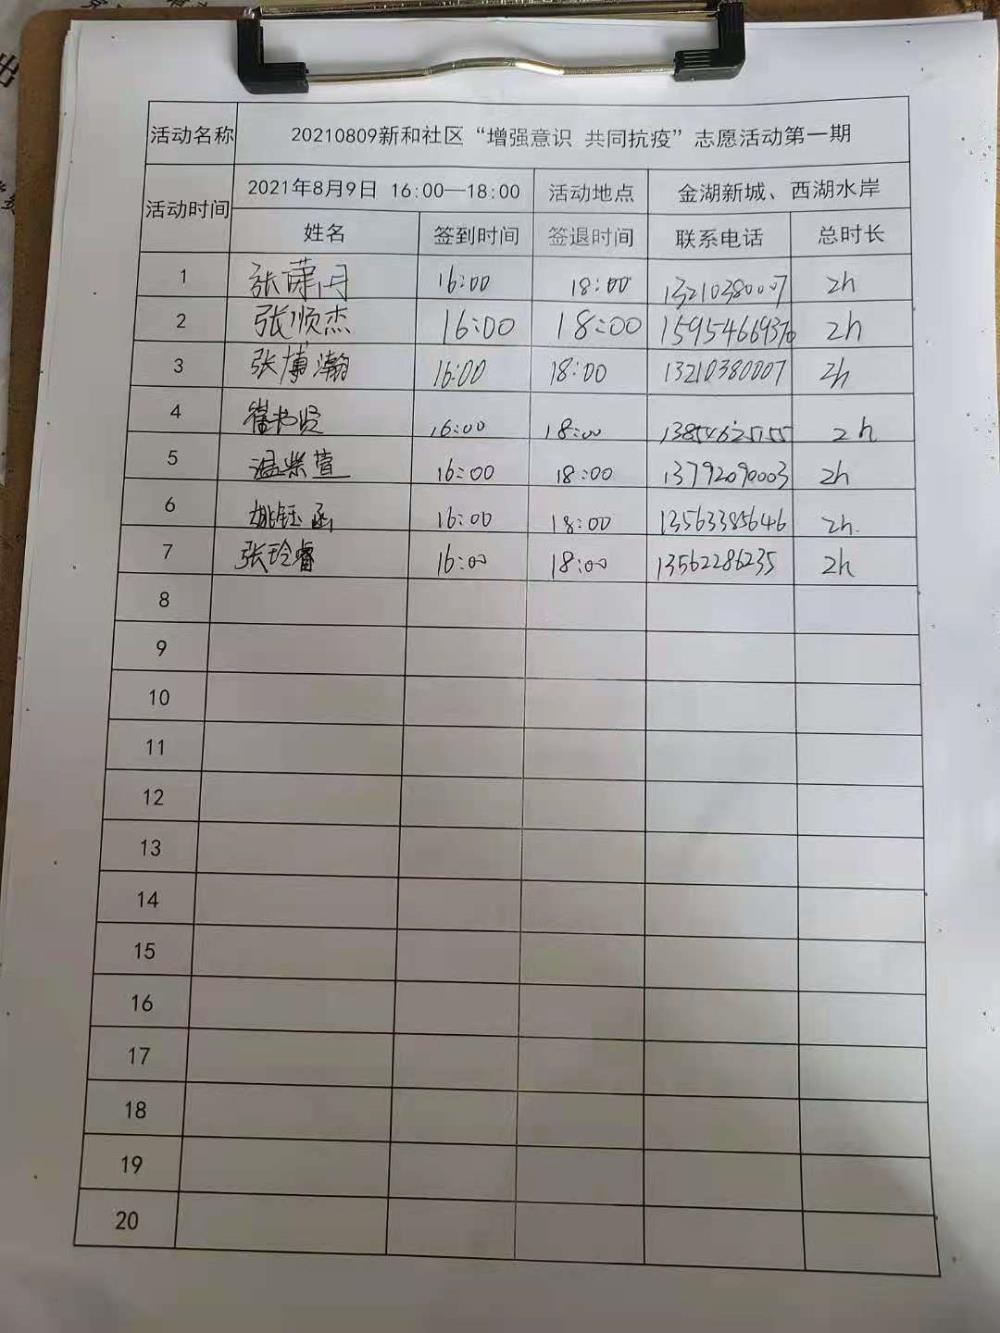 出
活动名称 20210809新和社区“增强意识 共同抗疫”志愿活动第一期
活动时间 2021年8月9日 16:00—18:00 活动地点 金湖新城、西湖水岸
姓名 签到时间 签退时间 联系电话 总时长
1 张潇月 16:00 18:00 13210380007 2h
2 张顺杰 16:00 18:00 15954669376 2h
3 张博瀚 16:00 18:00 13210380007 2h
4 崔书贤 16:00 18:00 13854625155 2h
5 温紫萱 16:00 18:00 13792090003 2h
6 姚钰函 16:00 18:00 13563385646 2h.
7 张玲睿 16:00 18:00 13562286235 2h
8
9
10
11
12
13
14
15
16
17
18
19
20